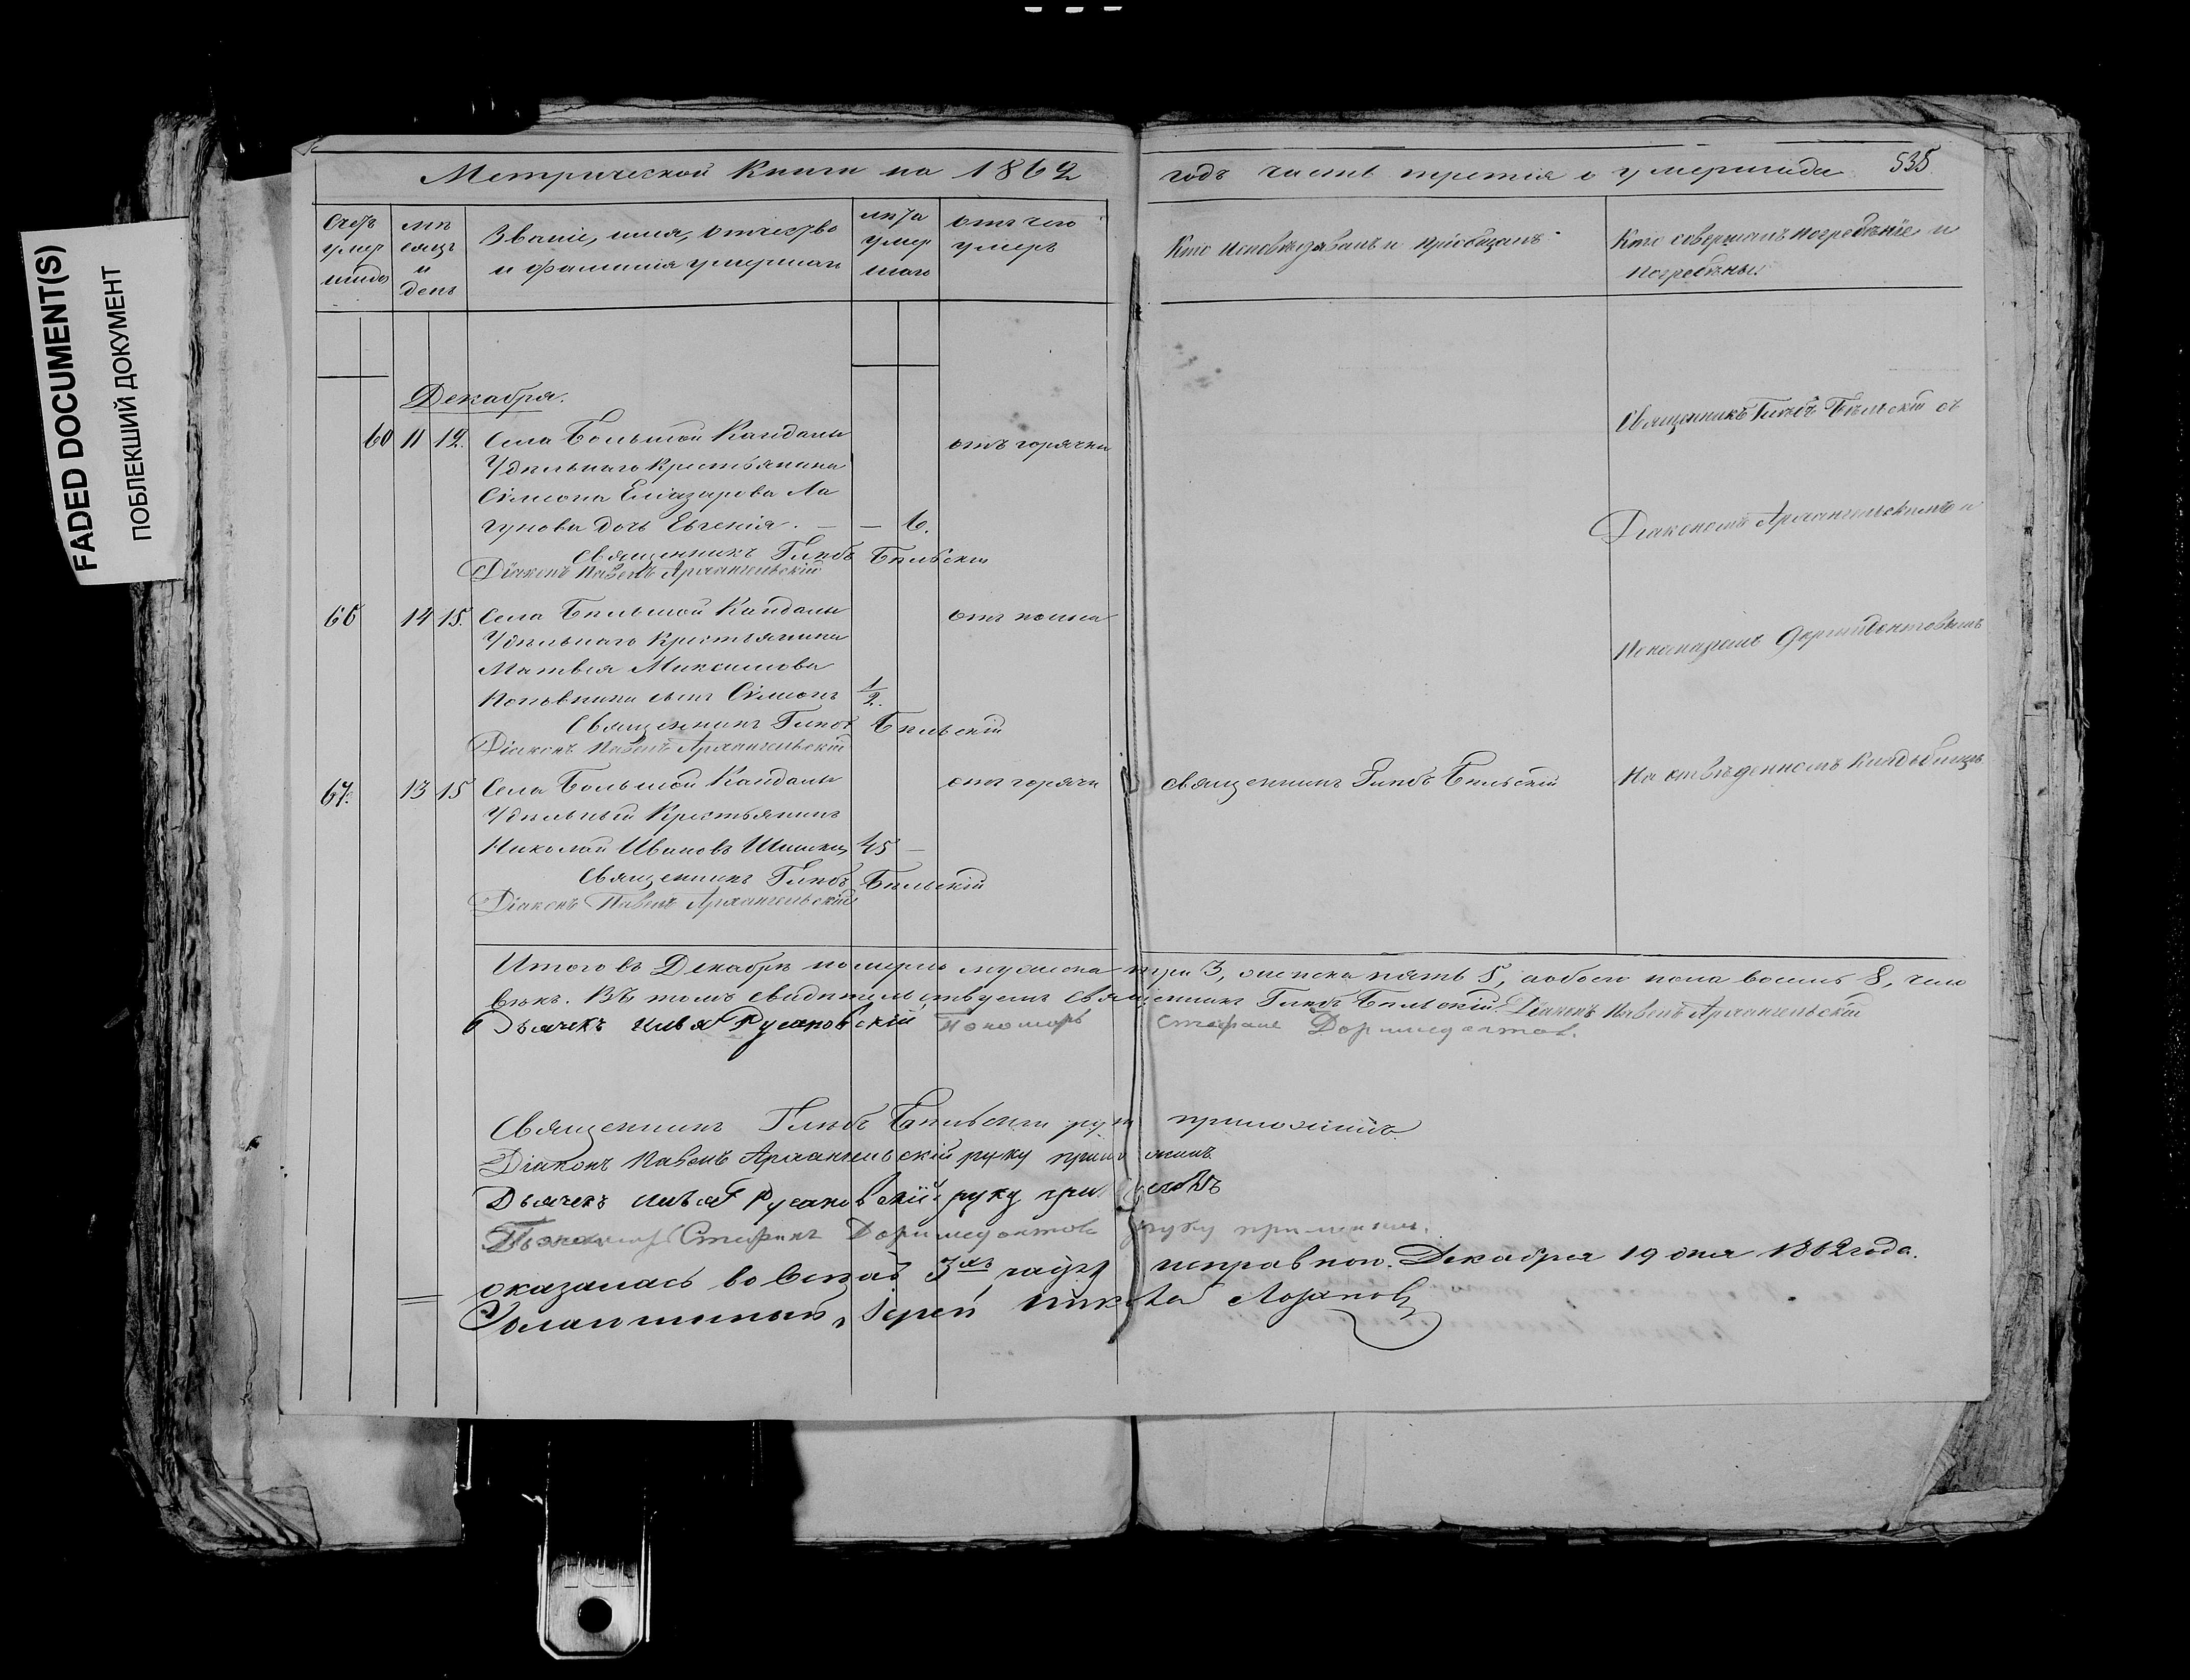 FADED DOCUMENT(S)
ПОБЛЕКШИЙ ДОКУМЕНТ
Метрической Книги на 1862 годъ часть третія о умершихъ 535
Счетъ умер шихъ
мѣ сяцъ и день
Званіе, имя, отчество и фамилія умершаго
лѣта умер шаго
отъ чего умеръ
Кто исповѣдавалъ и пріобщалъ
Кто совершалъ погребѣніе и погребѣны
Декабря.
60 11 12. Села Большой Кандалы отъ горячки
Удѣльнаго Крестьянина
Сѵмеона Елiазарова Ла
гунова дочь Евгенія. — — 6.
Священникъ Глѣбъ Бѣльскій
Діаконъ Павелъ Архангельскій
66 14 15. Села Большой Кандалы отъ поноса
Удѣльнаго Крестьянина
Матвея Максимова
сынъ Сѵмеонъ 1/2.
Священникъ Глѣбъ Бѣльскій
Діаконъ Павелъ Архангельскій
67. 13 15 Села Большой Кандалы отъ горячки
Удѣльный Крестьянинъ
Николай Ивановъ 45 —
Священникъ Глѣбъ Бѣльскій
Діаконъ Павелъ Архангельскій
Священникъ Глѣбъ Бѣльскій
Священникъ Глѣбъ Бѣльскій съ
Діакономъ Архангельскимъ и
Пономаремъ Дормидонтовымъ
На отвѣденномъ кладбищѣ
Итого въ Декабрѣ померло мужеска три 3, женска пять 5, обоего пола восмь 8, чело
вѣкъ. Въ томъ свидѣтельствуемъ Священникъ Глѣбъ Бѣльскій Діаконъ Павелъ Архангельскій
Дьячекъ Илья Русановскій Пономарь Стефанъ Дормидонтовъ.
Священникъ Глѣбъ Бѣльскій руку приложилъ
Діаконъ Павелъ Архангельскій руку приложилъ
Дьячекъ Илья Русановскій руку приложилъ
Пономарь Стефанъ Дормидонтовъ руку приложилъ.
оказалась во всѣхъ 3хъ частяхъ исправною. Декабря 19 дня 1862 года.
Благочинный, Іерей Николай Лозановъ